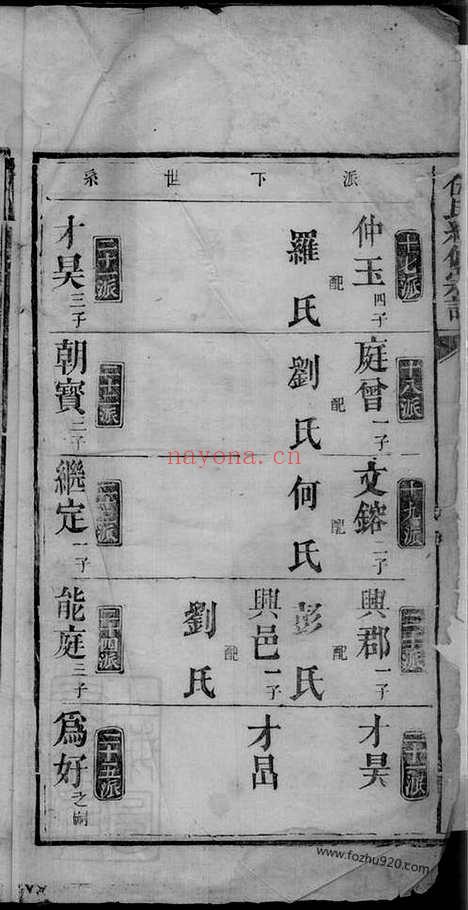 派下世系
十七派
仲玉四子
配
羅氏
十八派
庭曾一子
配
劉氏
十九派
文鎔二子
配
何氏
二十派
興郡一子
配
彭氏
興邑一子
配
劉氏
二十一派
才昊
才昌
二十一派
才昊三子
二十二派
朝寶二子
二十三派
繼定一子
二十四派
能庭三子
二十五派
爲好之嗣
nayona.cn
www.fozhu920.com